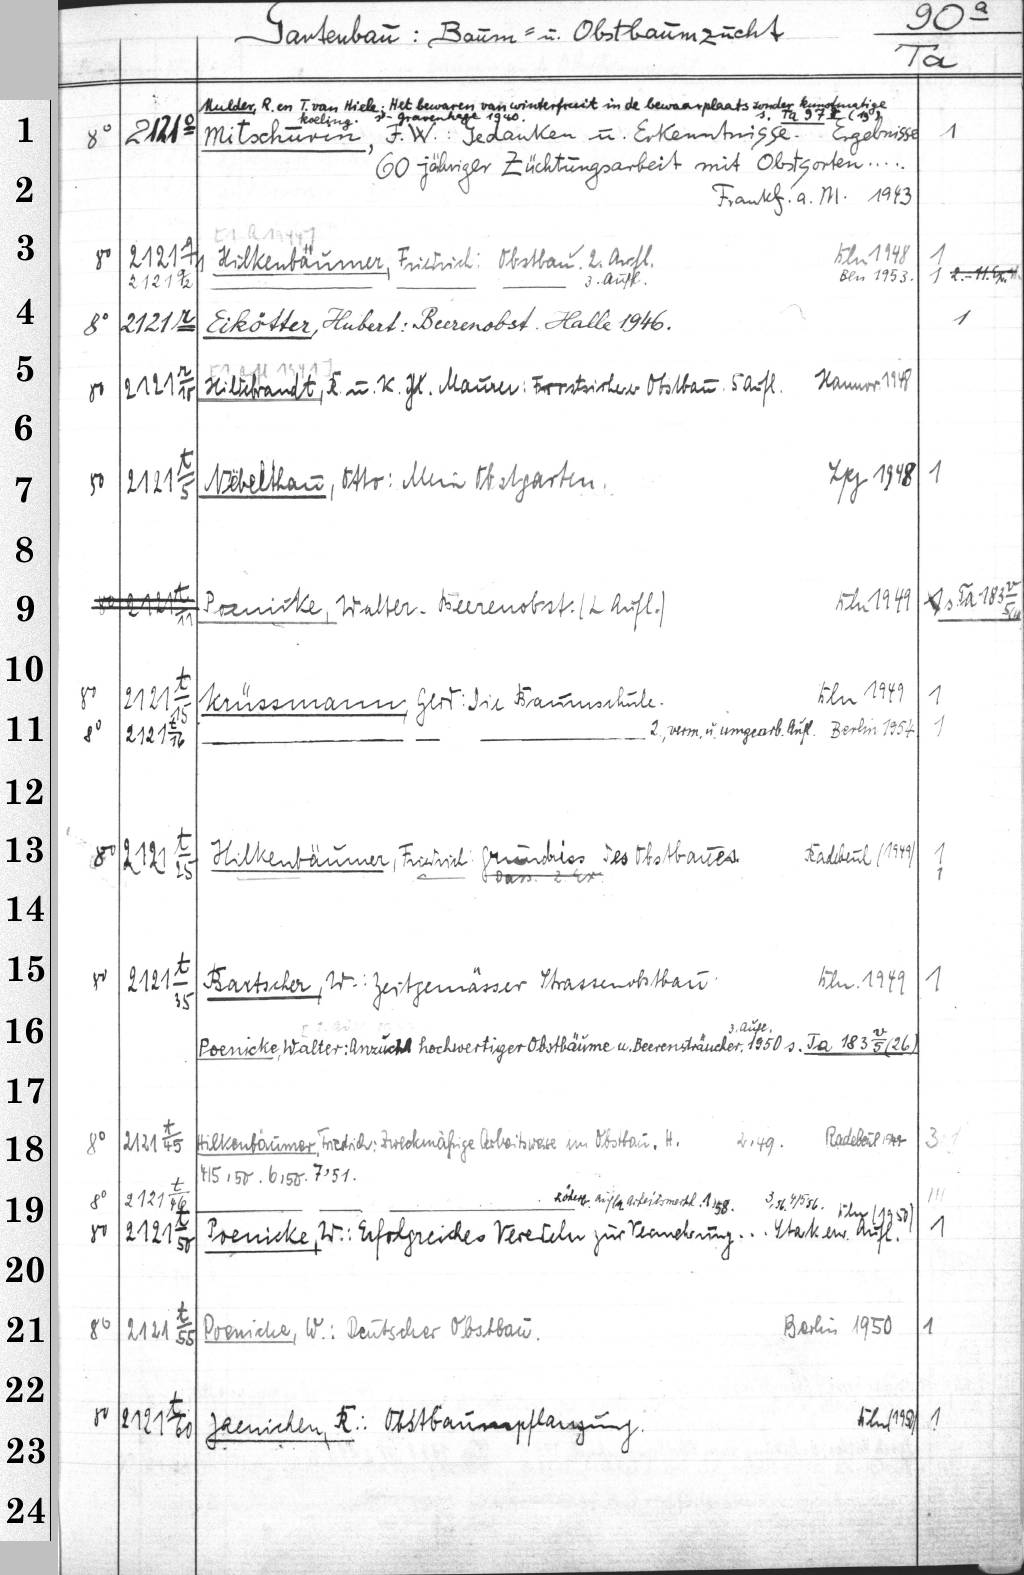 Gartenbau: Baum= u. Obstbaumzucht
90 a
Ta
Mulder, R. en T. van Hiele: Het bewaren van winterfruit in de bewaarplaats zonder kunstmatige
koeling. s'-Gravenhage 1940. s. Ta 97
1 8° 2121 o Mitschurin, F. W.: Gedanken u. Erkenntnisse. Ergebnisse 1
60 jähriger Züchtungsarbeit mit Obstsorten.....
2 Frankf. a. M. 1943
[1. A 1944]
3 80 2121 q/1 Hilkenbäumer, Friedrich: Obstbau. 2. Aufl. Bln 1948 1
2121 q/2 3. Aufl. Bln 1953. 1
4 8° 2121 r Eikötter, Hubert: Beerenobst. Halle 1946. 1
5 80 2121 r/15 Hiltebrandt, R. u. K. Maurer: Obstbau. 5 Aufl. Hannov 1948
6
7 80 2121 t/5 Nebelthau, Otto: Mein Obstgarten. Lpz 1948 1
8
9 80 2121 t/11 Poenicke, Walter. Beerenobst. (2 Aufl.) Bln 1949 1 s. Ta 183 v/5
10
80 2121 t/15 Krüssmann, Gerd: Die Baumschule. Bln 1949 1
11 8° 2121 t/16 2., verm. u. umgearb. Aufl. Berlin 1954. 1
12
13 80 2121 t/25 Hilkenbäumer, Friedrich: Grundriss des Obstbaues. Radebeul (1949) 1
Dass. 2. Ex 1
14
15 80 2121 t/35 Bartscher, W.: Zeitgemässer Strassenobstbau. Bln. 1949 1
16 3. Aufl.
Poenicke, Walter: Anzucht hochwertiger Obstbäume u. Beerensträucher. 1950 s. Ta 183 v/5 (26)
17
18 8° 2121 t/45 Hilkenbäumer, Friedrich: Zweckmäßige Arbeitsweise im Obstbau. H. 2, 49. Radebeul 3
4/5, 50. 6, 50. 7, 51.
19 8° 2121 t/46 1, 58. 3, 56. 4/5 56.
80 2121 t/50 Poenicke, W.: Erfolgreiches Veredeln zur Vermehrung... Stark erw. Aufl. Bln (1950) 1
20
21 80 2121 t/55 Poenicke, W.: Deutscher Obstbau. Berlin 1950 1
22
80 2121 t/60 Jaenichen, R.: Obstbaumpflanzung. Bln (1950) 1
23
24